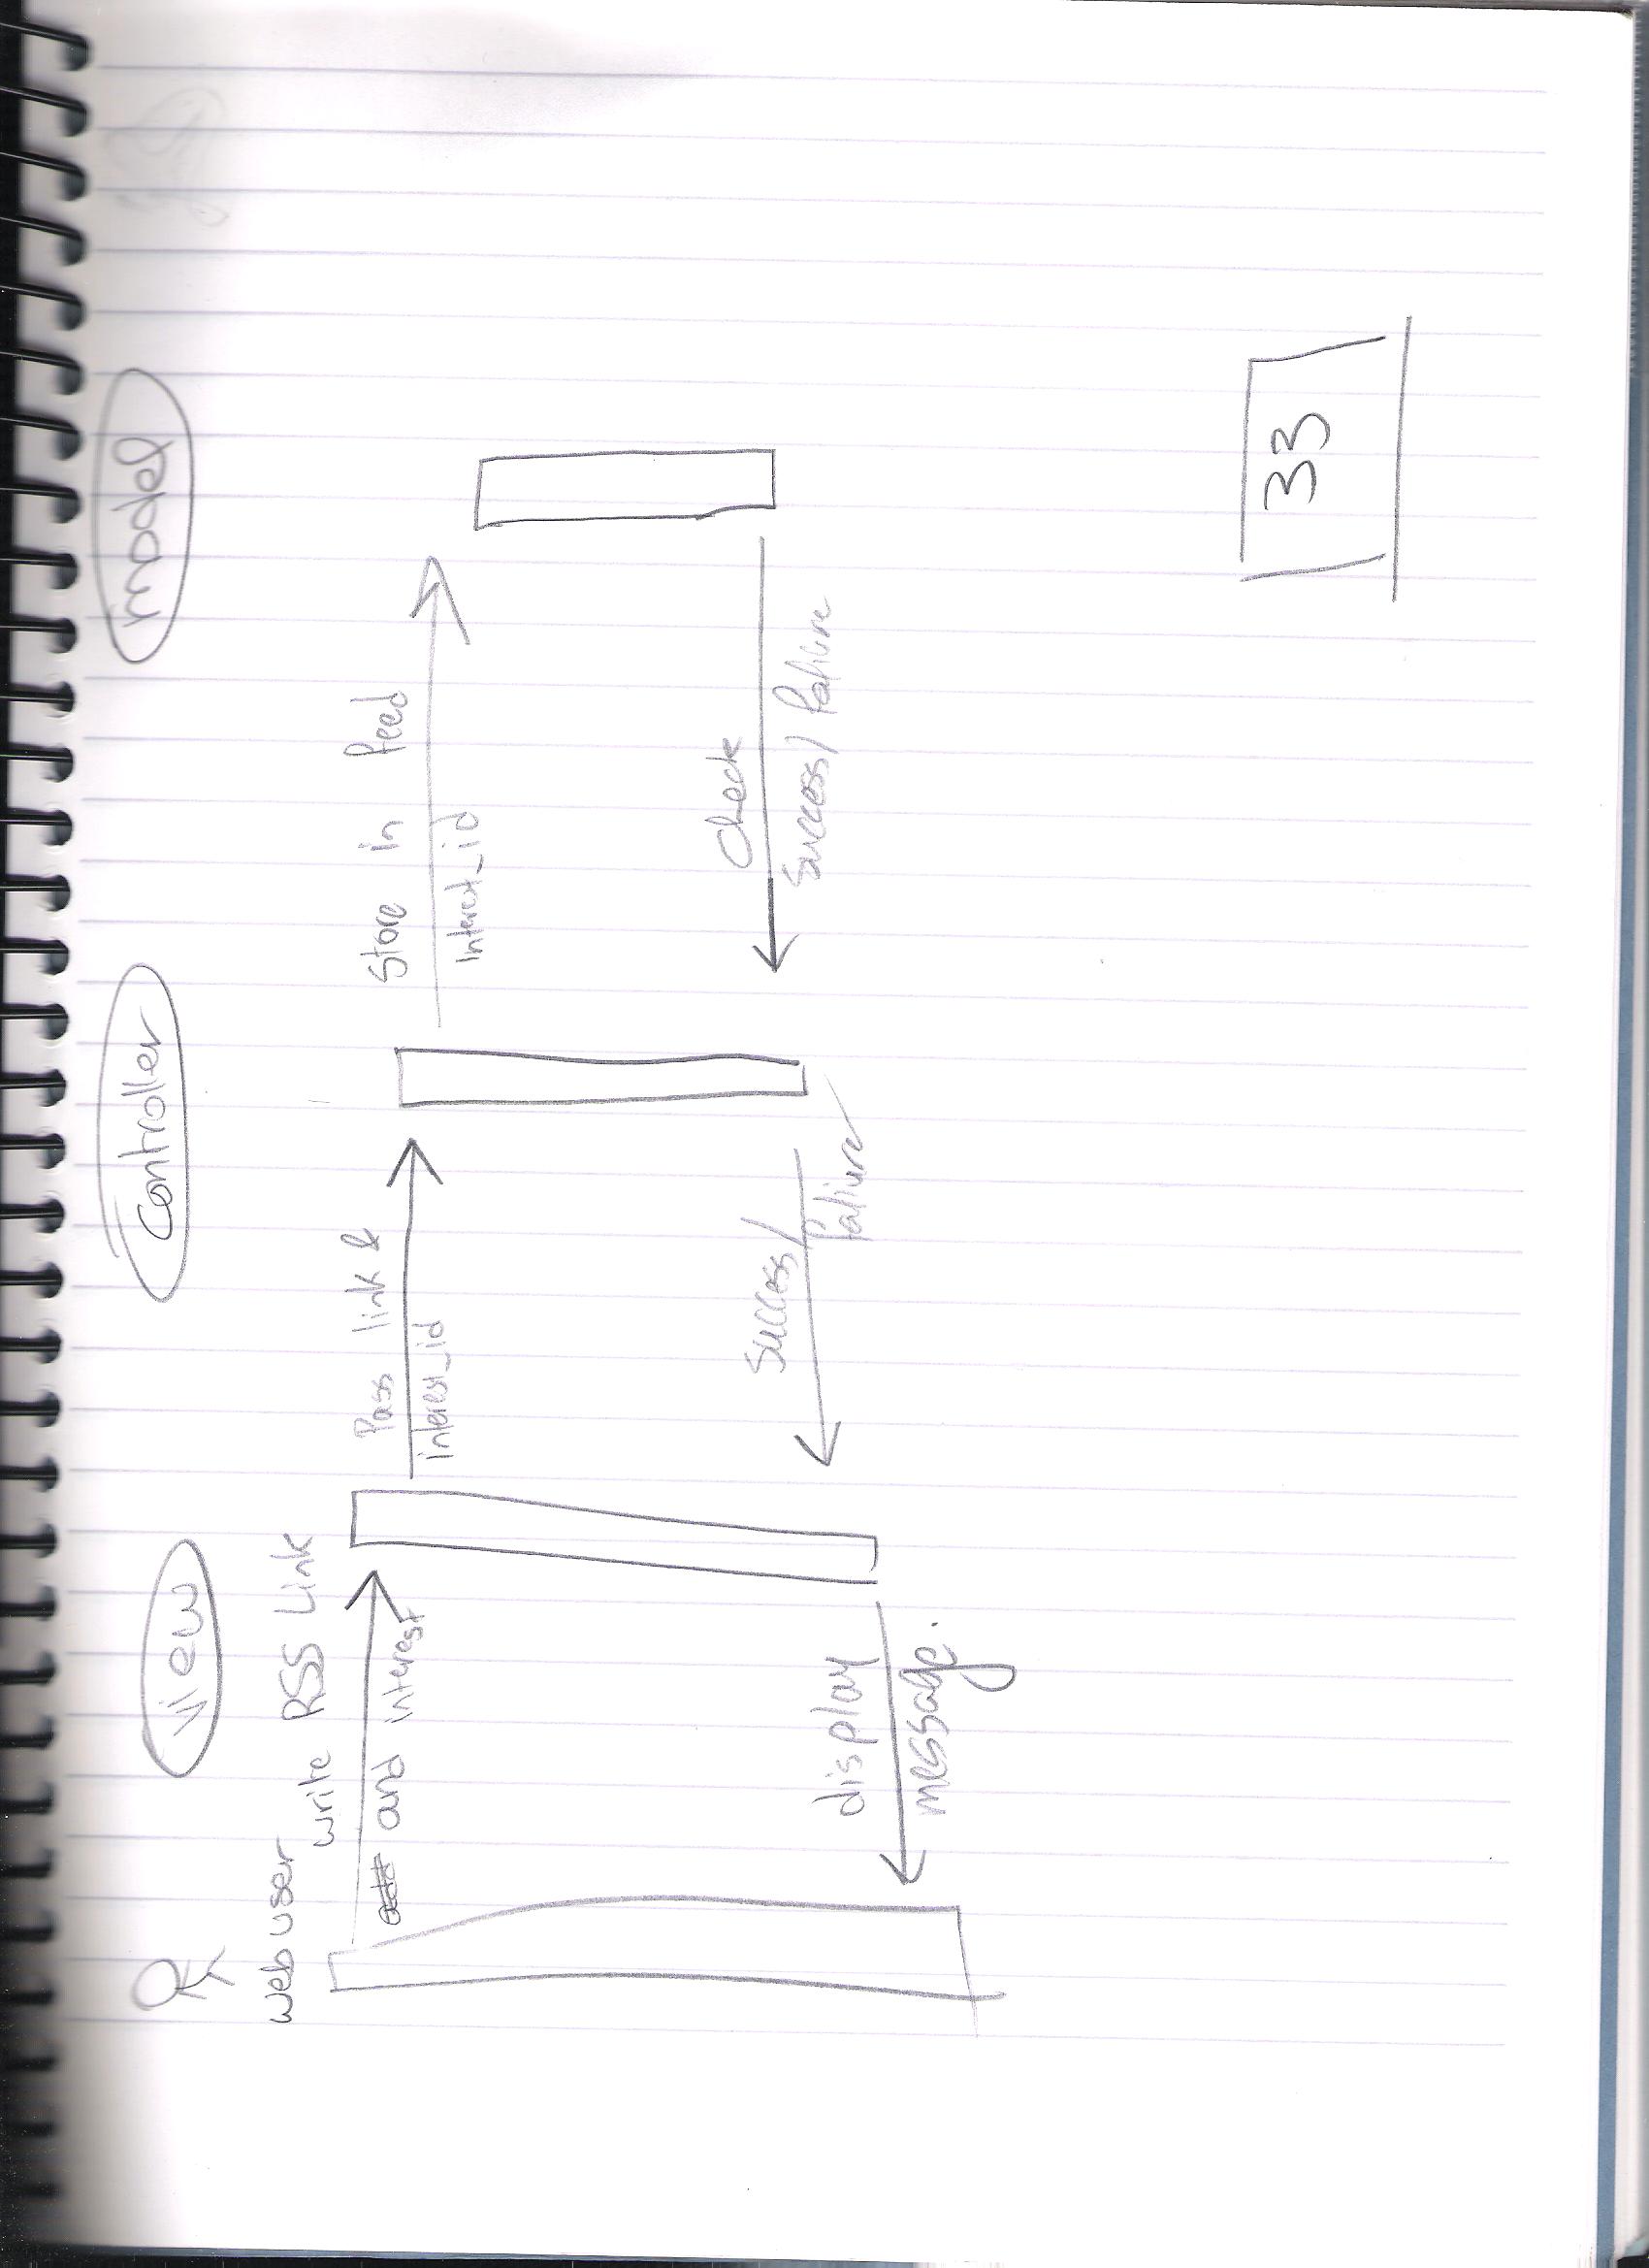 web user
View
Controller
model
write RSS Link
and interest
Pass link &
interest_id
Store in feed
interest_id
Check
Success/ faliure
Success/
faliure
display
message.
33